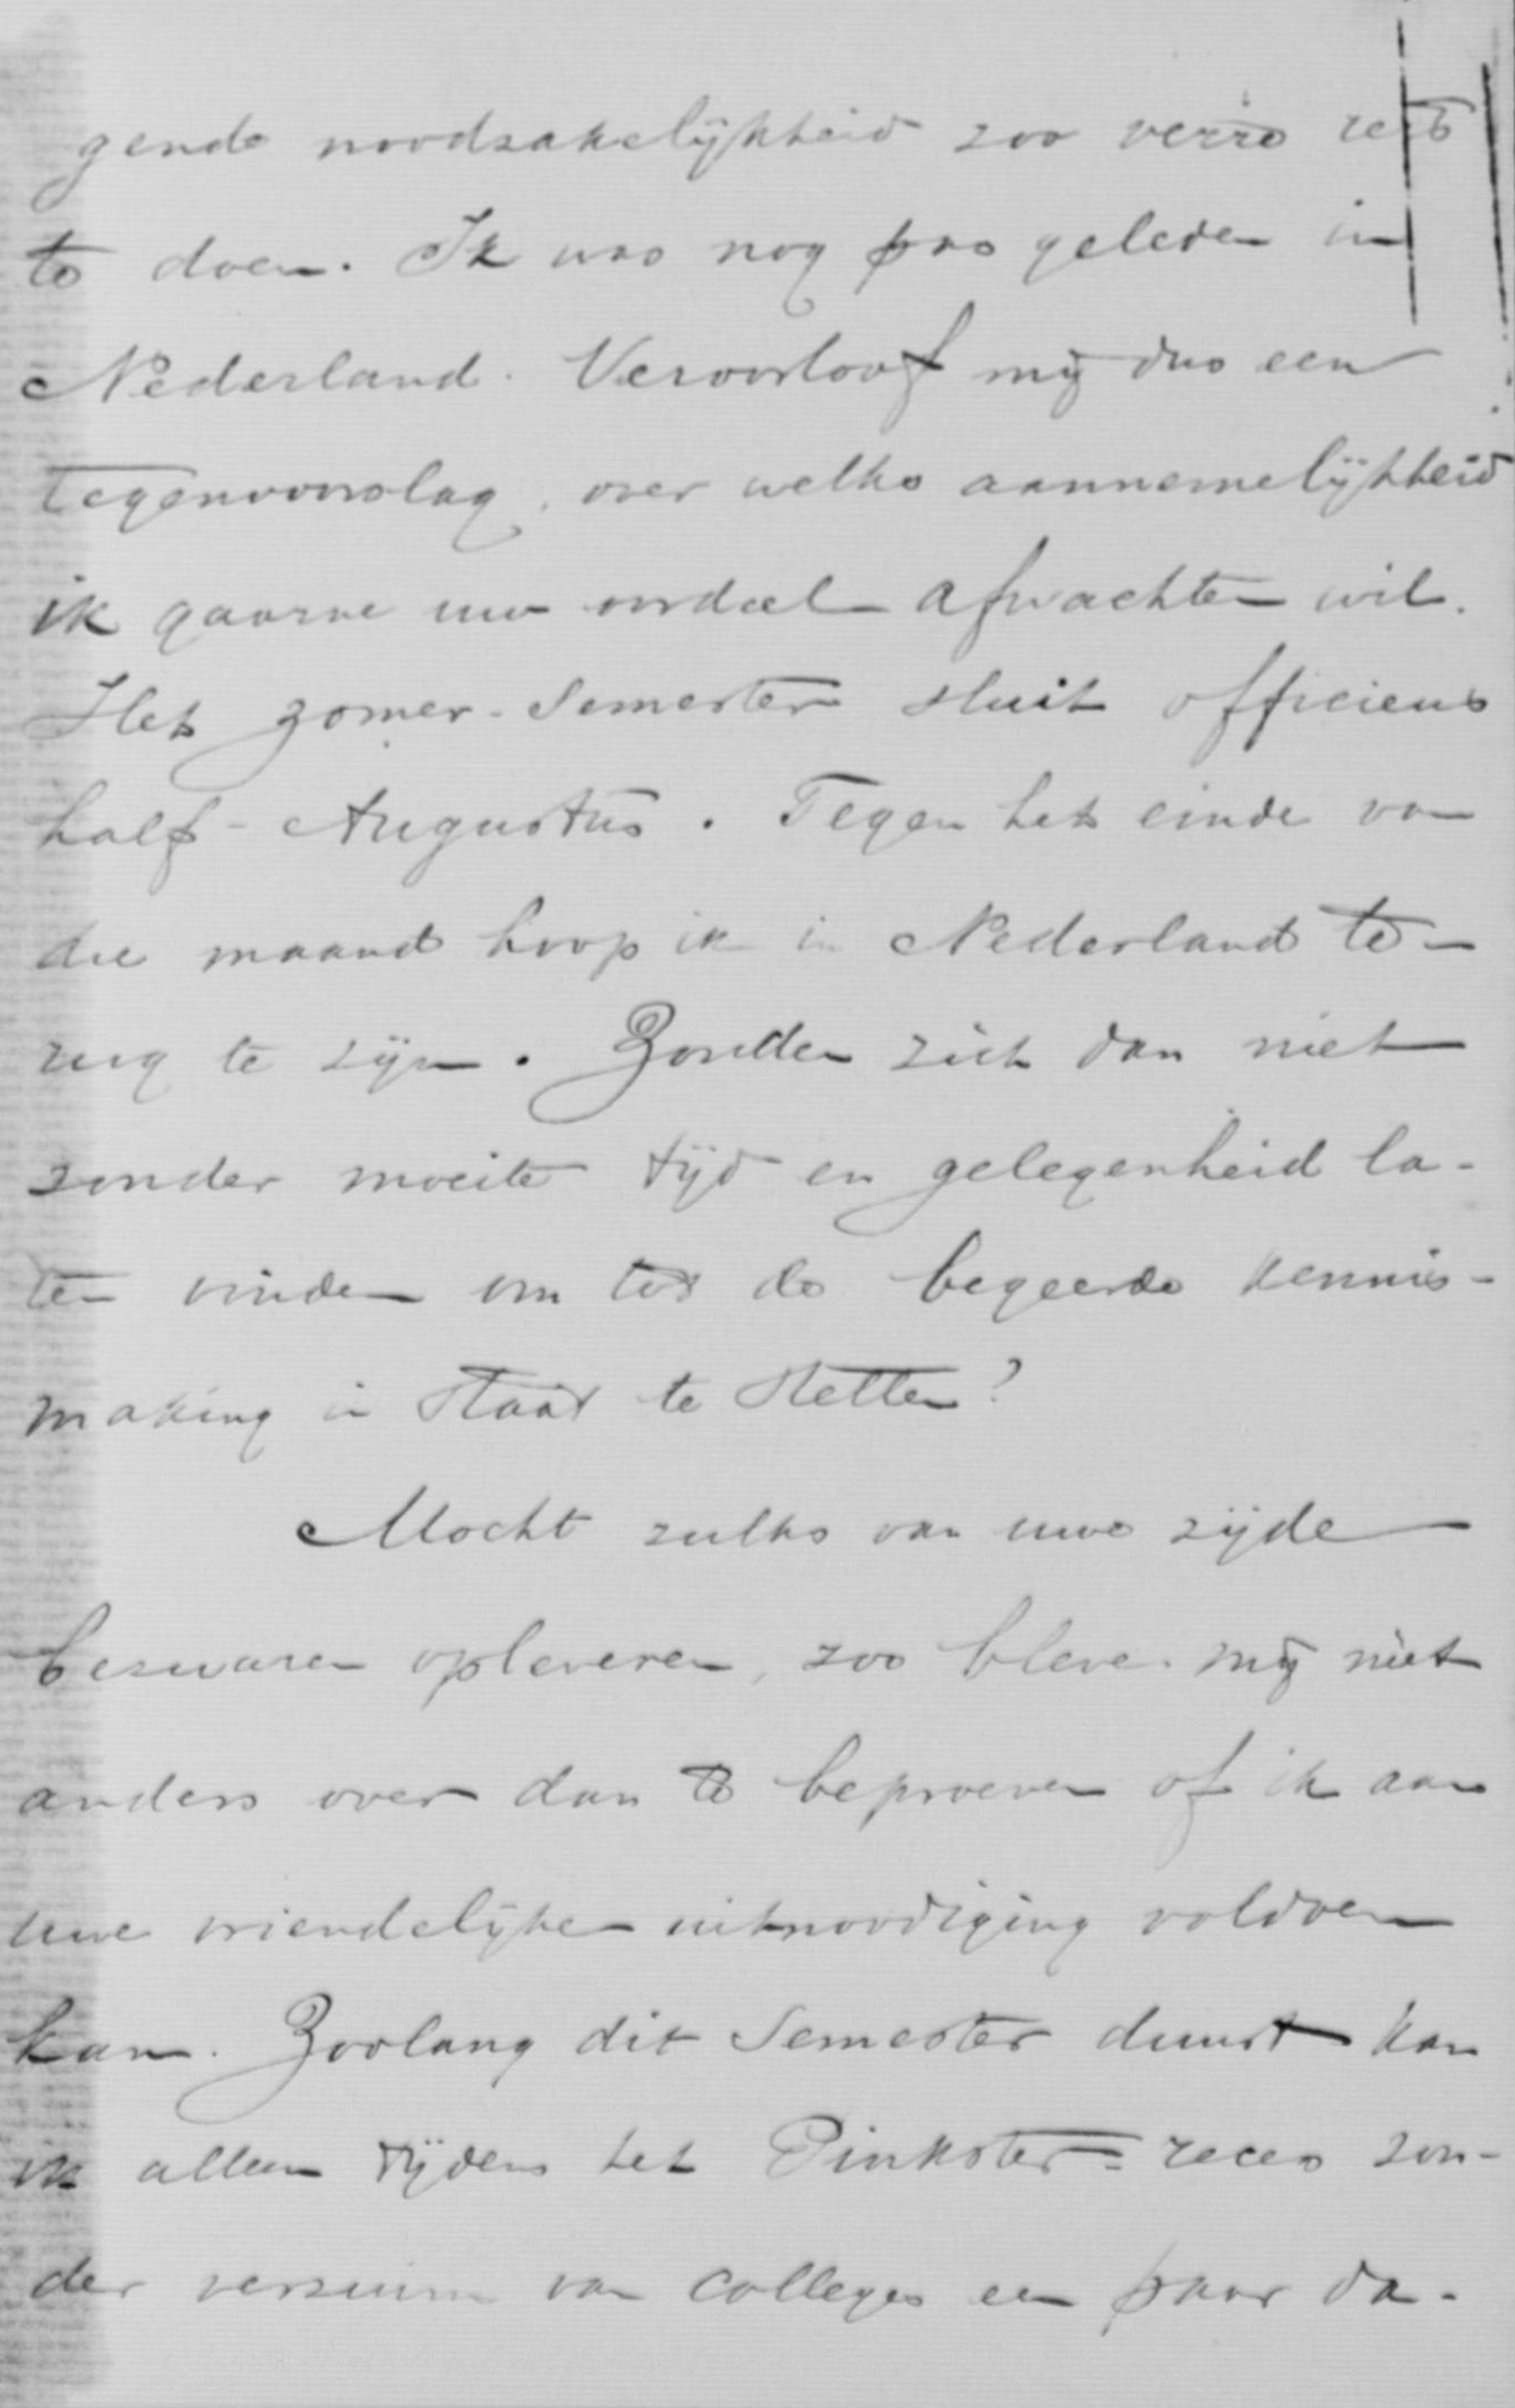 gende noodzakelijkheid zoo verre reis
te doen. Ik was nog pas geleden in
Nederland. Veroorloof mij dus een
tegenvoorslag, over welks aannemelijkheid
ik gaarne uw oordeel afwachten wil.
Het zomer-Semester sluit officieus
half-Augustus. Tegen het einde van
die maand hoop ik in Nederland te-
rug te zijn. Zouden zich dan niet
zonder moeite tijd en gelegenheid la-
ten vinden om tot de begeerde kennis-
making in staat te stellen?
Mocht zulks van uwe zijde
bezwaren opleveren, zoo bleve mij niet
anders over dan te beproeven of ik aan
uwe vriendelijke uitnoodiging voldoen
kan. Zoolang dit Semester duurt kan
ik alleen tijdens het Pinkster-reces zon-
der verzuim van colleges een paar da-